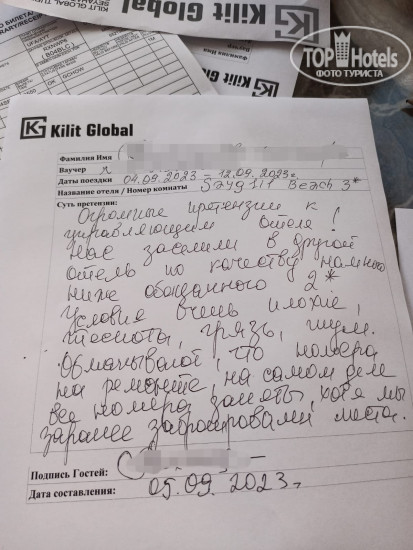 KILIT GLOBAL
Kilit Global
Фамилия Имя
TOP Hotels
ФОТО ТУРИСТА
Kilit Global
Фамилия Имя
Ваучер
Даты поездки 04.09.2023 - 12.09.2023г.
Название отеля / Номер комнаты Saygılı Beach 3*
Суть претензии:
Огромные претензии к
управляющим отеля!
Нас заселили в другой
отель по качеству намного
ниже обещанного 2*
Условия очень плохие,
теснота, грязь, шум.
Обманывают, что номера
на ремонте, на самом деле
все номера заняты, хотя мы
заранее забронировали места.
Подпись Гостей:
Дата составления: 05.09.2023г